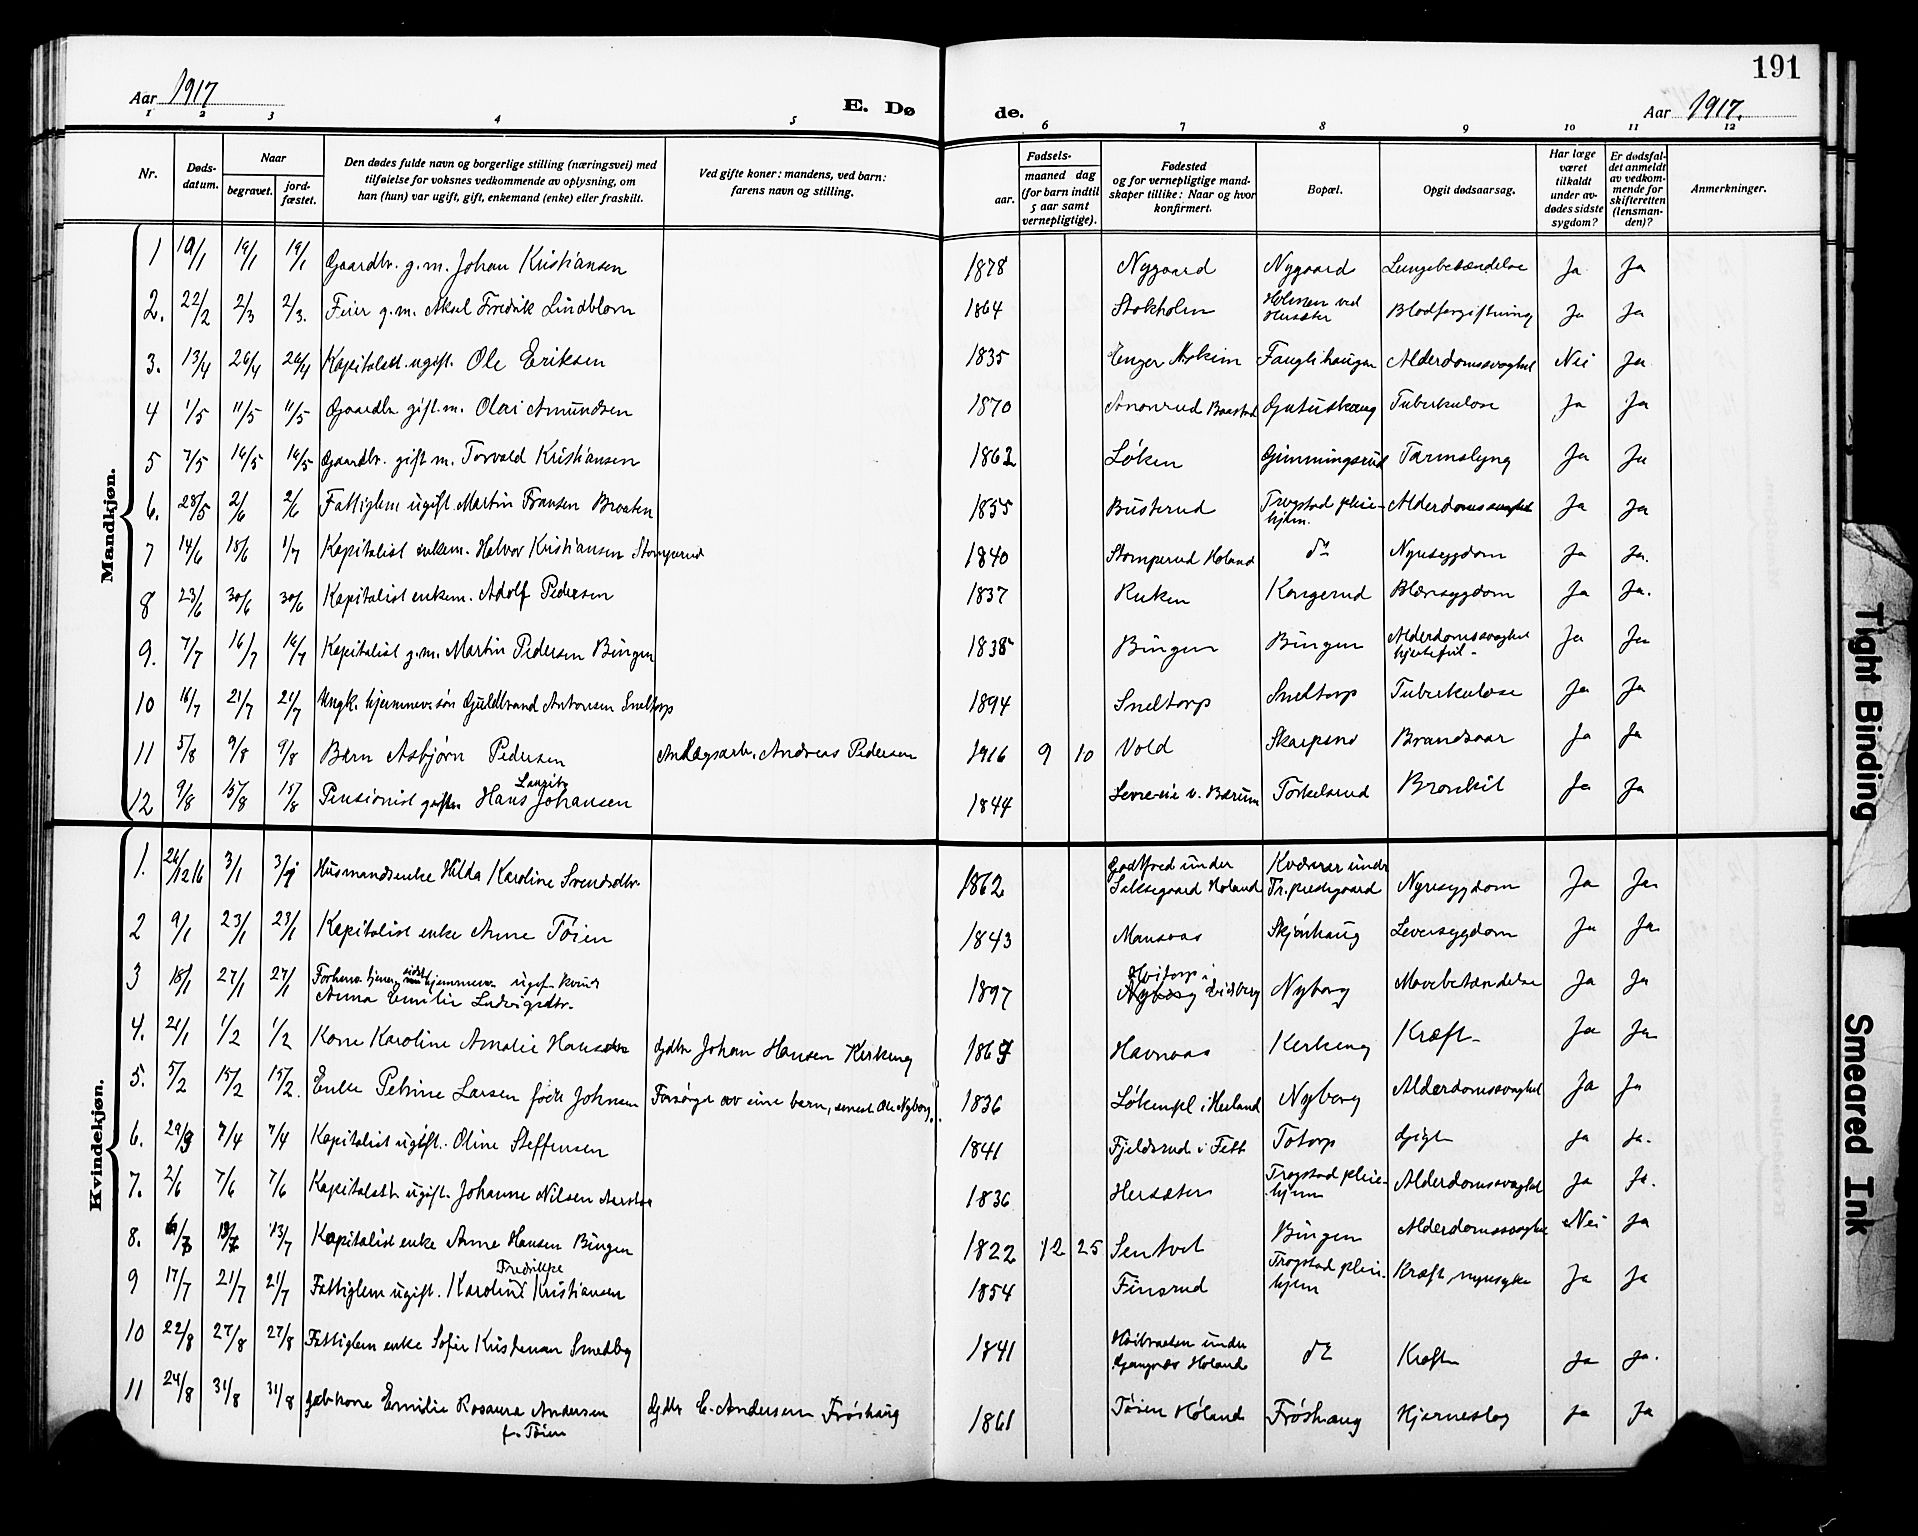 191
Aar 1917
E. Dø
de.
Aar 1917.
1 2 3 4 5 6 7 8 9 10 11 12
Nr.
Døds-
datum.
Naar
begravet.
jord-
fæstet.
Den dødes fulde navn og borgerlige stilling (næringsvei) med
tilføielse for voksnes vedkommende av oplysning, om
han (hun) var ugift, gift, enkemand (enke) eller fraskilt.
Ved gifte koner: mandens, ved barn:
farens navn og stilling.
Fødsels-
aar.
maaned dag
(for barn indtil
5 aar samt
vernepligtige).
Fødested
og for vernepligtige mand-
skaper tillike: Naar og hvor
konfirmert.
Bopæl.
Opgit dødsaarsag.
Har læge
været
tilkaldt
under av-
dødes sidste
sygdom?
Er dødsfal-
det anmeldt
av vedkom-
mende for
skifteretten
(lensman-
den)?
Anmerkninger.
Mandkjøn.
1 19/1 19/1 Gaardbr. g.m. Johan Kristiansen 1878 Nygaard Nygaard Lungebetændelse Ja Ja
2. 22/2 2/3 2/3. Feier g.m. Aksel Fredrik Lindblom 1864 Stokholm Holmen ved Hersæter Blodforgiftning Ja Ja
3. 13/4 26/4 26/4 Kapitalist. ugift. Ole Eriksen 1835 Enger Askim Fauglihaugen Alderdomssvaghet Nei Ja
4 1/5 11/5 11/5 Gaardbr gift.m. Olai Amundsen 1870 Baastad Tuberkulose Ja Ja
5 7/5 16/5 16/5 Gaardbr. gift m. Torvald Kristiansen 1862 Løken Gimmingsrud Tarmslyng Ja Ja
6. 28/5 2/6 2/6 Fattiglem ugift. Martin Fransen Braaten 1855 Busterud Trøgstad pleie-hjem. Alderdomssvaghet Ja Ja
7 14/6 18/6 1/7 Kapitalist enkem. Halvor Kristiansen Stomperud 1840 Stomperud Høland do Nyresygdom Ja Ja.
8 23/6 30/6 30/6 Kapitalist enkem. Adolf Pedersen 1837 Ruken Kongerud Blæresygdom Ja Ja.
9. 7/7 16/7 16/7 Kapitalist g.m. Martin Pedersen Bingen 1838 Bingen Bingen Alderdomssvaghet hjertefeil - Ja Ja
10 16/7 21/7 21/7 Ungk. hjemmev. søn Guldbrand Antonsen Sneltorp 1894 Sneltorp Sneltorp Tuberkulose Ja Ja
11 5/8 9/8 9/8 Barn Asbjørn Pedersen Anlægsarb. Andreas Pedersen 1916 9 10 Vold Skarpsno Brandsaar Ja Ja
12 9/8 15/8 15/8 Pensionist giftm Hans Lauritz Johansen 1844 v. Bærum Torkelsrud Bronkit Ja Ja
Kvindekjøn.
1. 26/12 16 3/1 3/1 Husmandsenke Hilda Karoline Svendsdtr. 1862 Godtfred under Høland Kværner under Tr. prestegaard Nyresygdom Ja Ja.
2 9/1 23/1 23/1 Kapitalist enke Anne Tøien 1843 Monsaas Skjønhaug Leversygdom Ja Ja.
3 18/1 27/1 27/1 sidst hjemmev. ugift kvind Anna Emilie Ludvigsdtr. 1897 Hvitorp i Nyborg Eidsberg Nyborg Mavebetændelse Ja Ja
4. 21/1 1/2 1/2 Kone Karoline Amalie Hansdtr Gdbr Johan Hansen Kirkeng 1867 Havnaas Kirkeng Kræft - Ja Ja
5. 5/2 15/2 15/2. Enke Petrine Larsen født Johnsen Forsørget av sine barn, senest Ole Nyborg. 1836 Løkenpl i Høland Nyborg Alderdomssvaghet Ja Ja
6. 29/3 7/4 7/4 Kapitalist ugift. Oline Steffensen 1841 Fjeldsrud i Fett Totorp Gigt Ja Ja.
7. 2/6 7/6 7/6 Kapitalist ugift. Johanne Nilsen Aarstad 1836 Hersæter Trøgstad pleie-hjem Alderdomssvaghet Ja Ja.
8. 6/7 13/7 13/7 Kapitalist enke Anne Hansen Bingen 1822 12 25 Sentvet Bingen Alderdomssvaghet Nei Ja
9 17/7 21/7 21/7 Fattiglem ugift. Karoline Fredrikke Kristiansen 1854 Finsrud Trøgstad pleie-hjem Kræft, nyresyke Ja Ja
10 22/8 27/8 27/8 Fattiglem enke Sofie Kristensen Smedby 1841 Høibraaten under Høland do Kræft Ja Ja.
11 24/8 31/8 31/8 Gdbr kone Emilie Rosaura Andersen f. Tøien Gdbr C. Andersen Frøshaug 1861 Tøien Høland Frøshaug Hjerneslag Ja Ja
Tight Binding
Smeared Ink